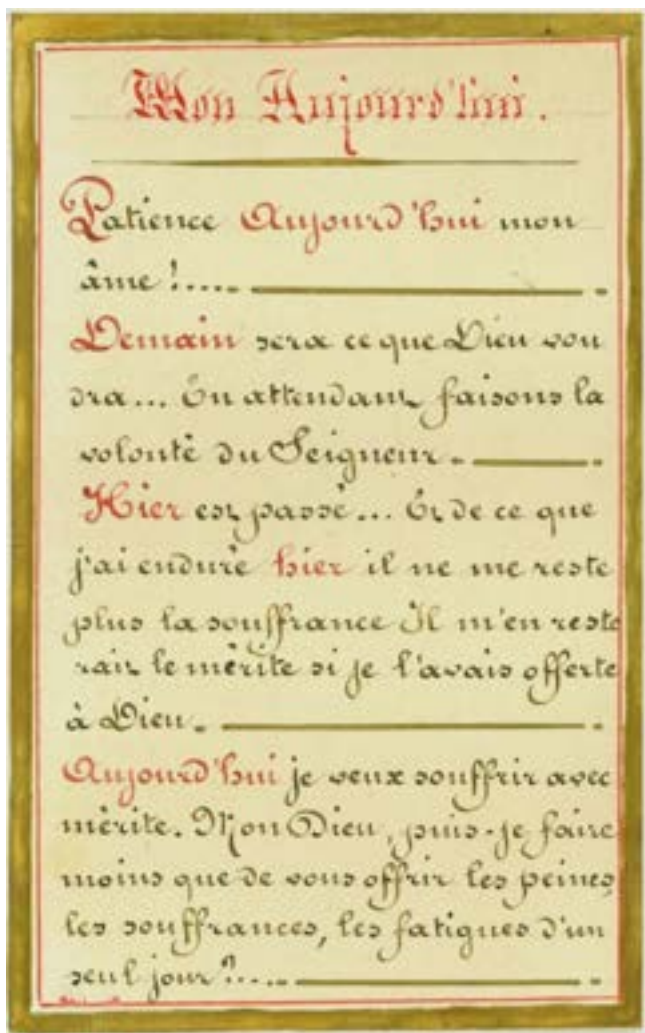 Mon Aujourd'hui.
Patience Aujourd'hui mon
âme !....
Demain sera ce que Dieu vou
dra... En attendant faisons la
volonté du Seigneur.
Hier est passé... Et de ce que
j'ai enduré hier il ne me reste
plus la souffrance Il m'en reste
rait le mérite si je l'avais offerte
à Dieu.
Aujourd'hui je veux souffrir avec
mérite. Mon Dieu, puis-je faire
moins que de vous offrir les peines,
les souffrances, les fatigues d'un
seul jour ?....